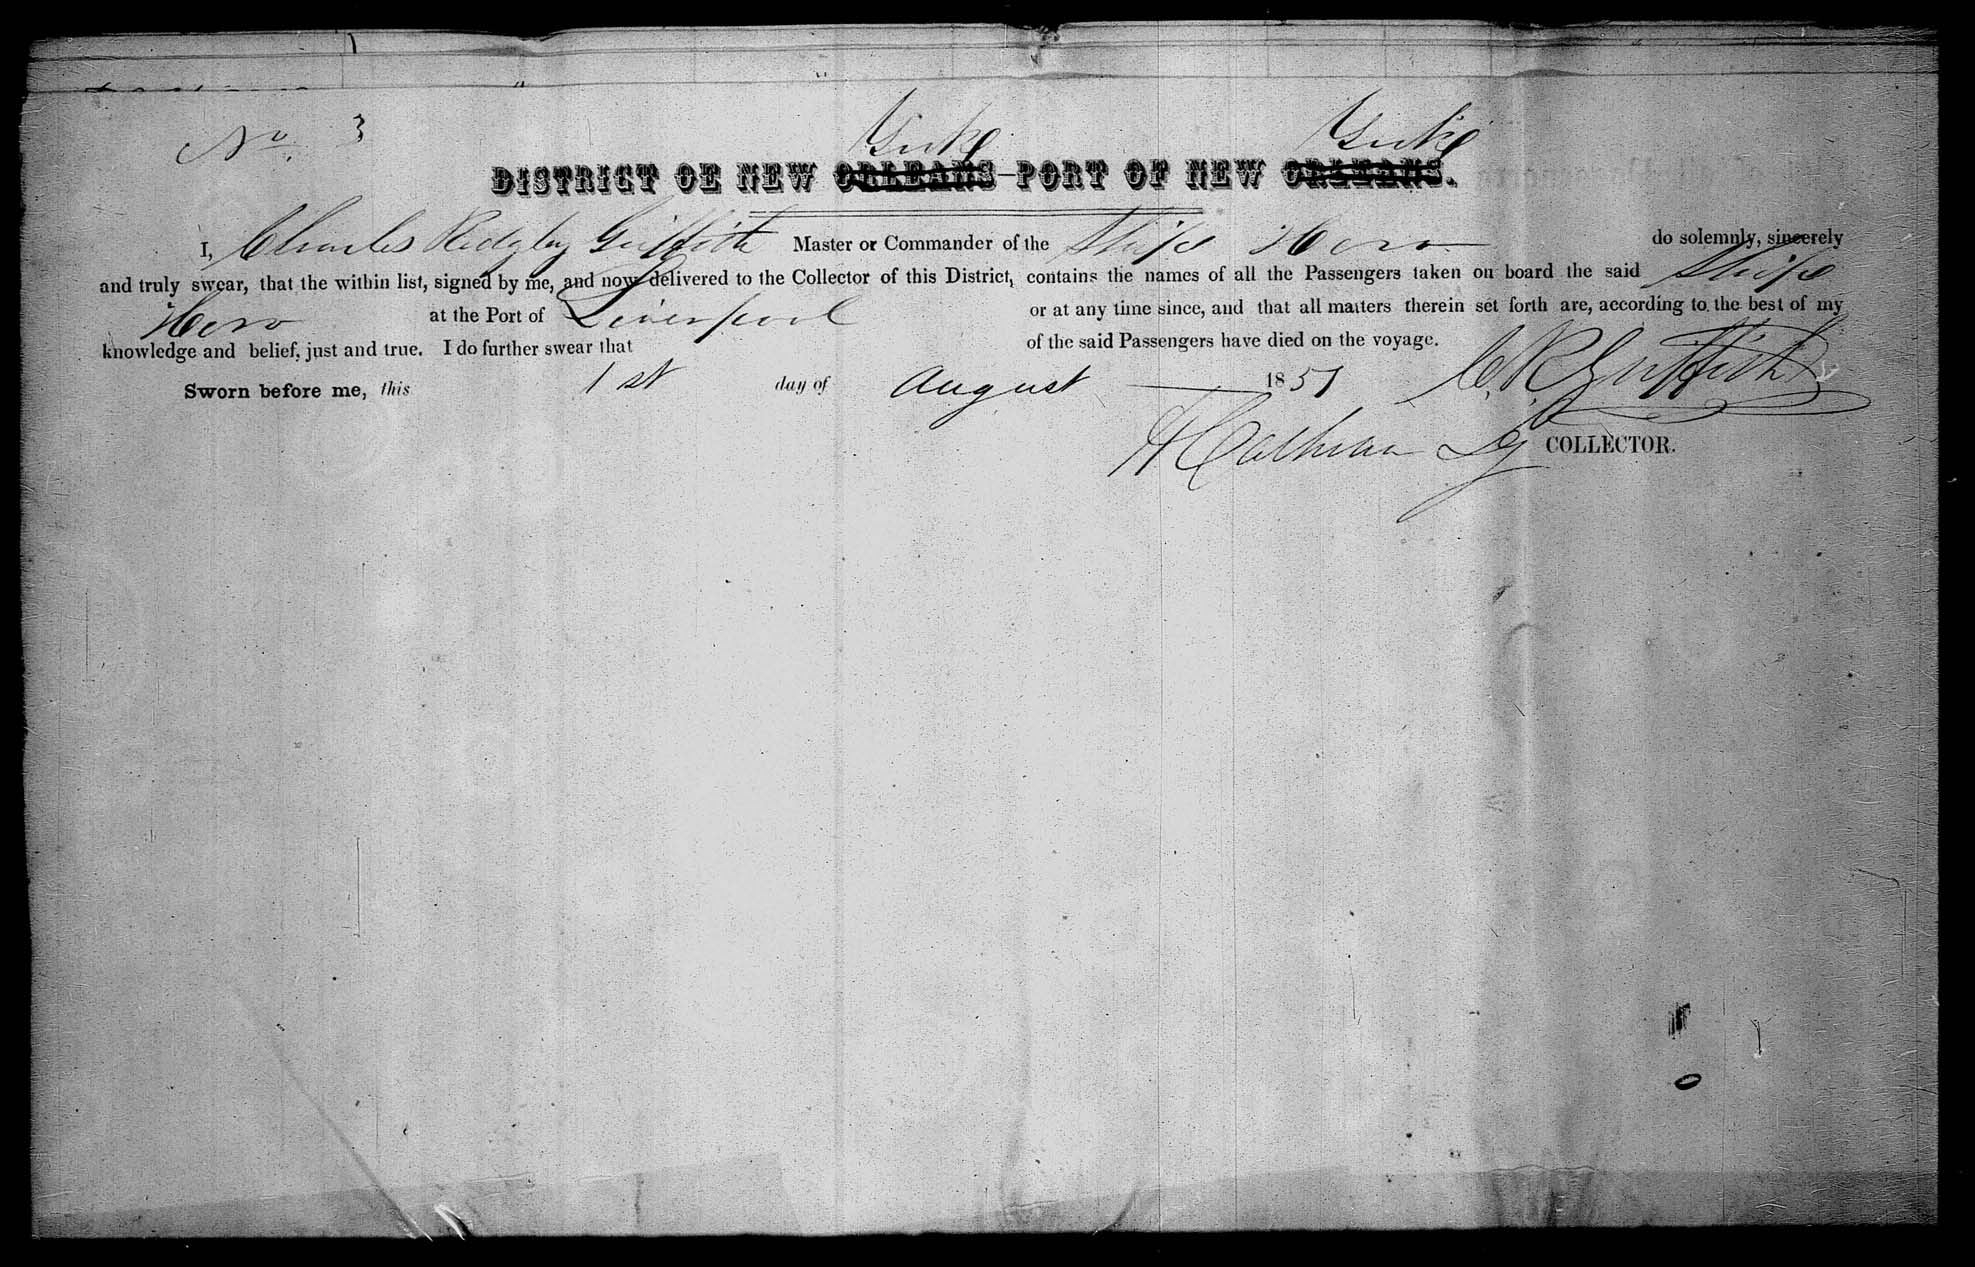 No. 3
York York
DISTRICT OF NEW ORLEANS—PORT OF NEW ORLEANS.
I, Charles Ridgley Griffith Master or Commander of the Ship Hero do solemnly, sincerely
and truly swear, that the within list, signed by me, and now delivered to the Collector of this District, contains the names of all the Passengers taken on board the said Ship
Hero at the Port of Liverpool or at any time since, and that all matters therein set forth are, according to the best of my
knowledge and belief, just and true. I do further swear that of the said Passengers have died on the voyage.
Sworn before me, this 1st day of August 1851 C. R. Griffith
Calhoun Dy COLLECTOR.